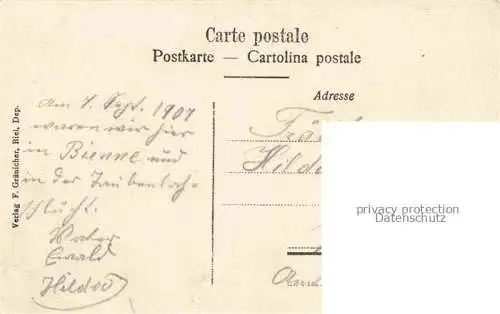 Carte postale
Postkarte — Cartolina postale
Adresse
Verlag F. Gränicher, Biel, Dep.
Am 7. Sept. 1907
waren wir hier
in Bienne und
in der Taubenloch-
schlucht.
Vater
Ewald
Hilda
Hilda
privacy protection
Datenschutz